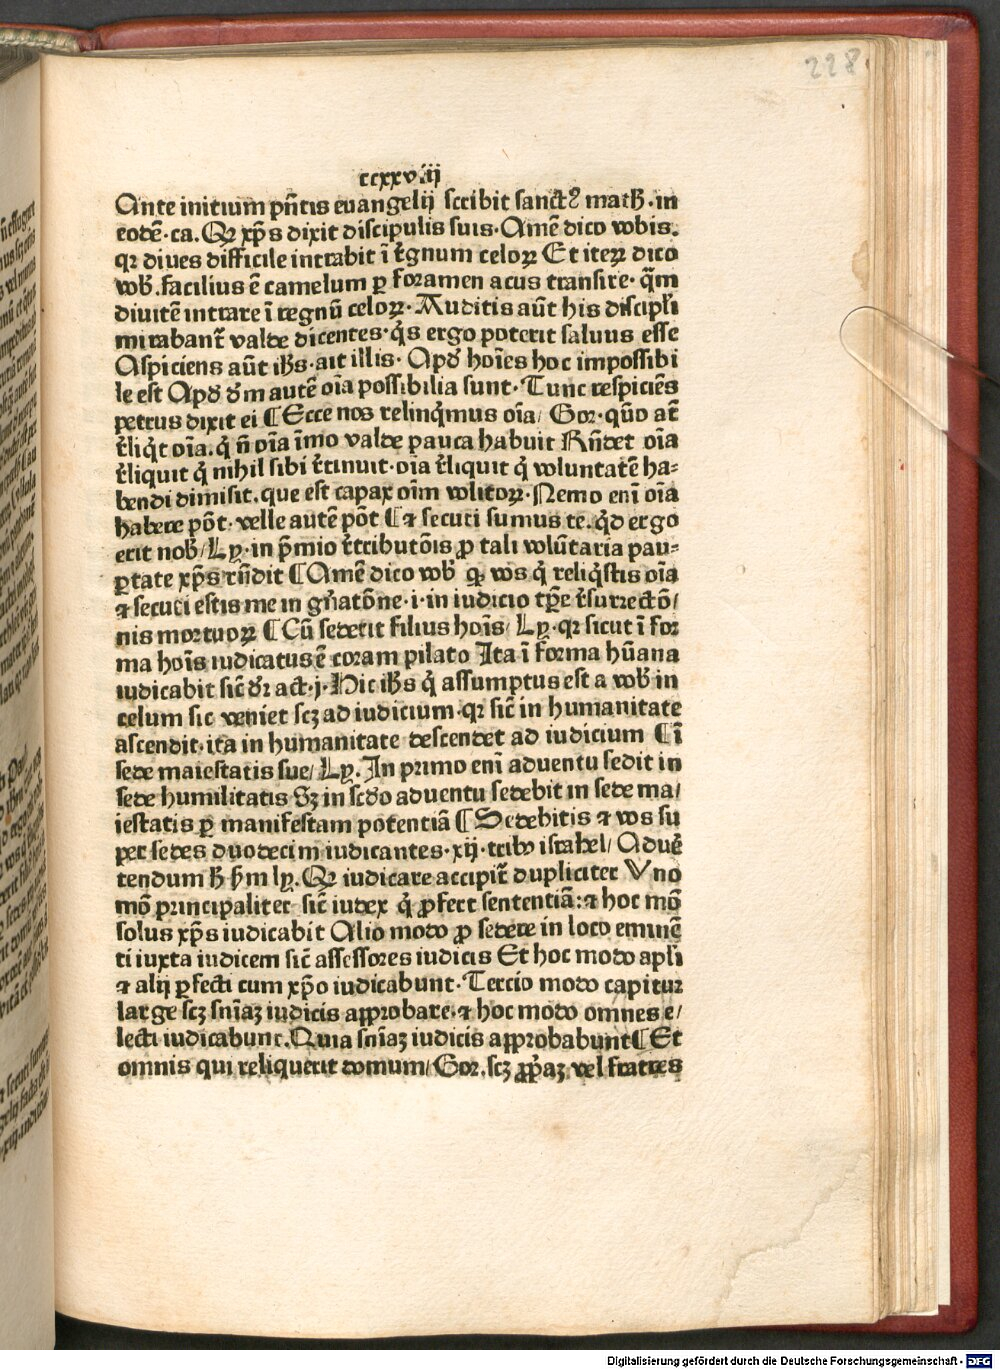 228
ccxxviij
Ante initium pn̄tis euangelij scribit sanctꝰ math̄·in
eodē·ca. Qꝛ xp̄s dixit discipulis suis·Amē dico vobis.
qꝛ diues difficile intrabit ī r̄gnum celoꝝ Et iteꝝ dico
vob̄.facilius ē camelum ꝑ foramen acus transire·q̄m
diuitē intrare ī regnū celoꝝ·Auditis aūt his discipl̄i
mirabanť valde dicentes·q̄s ergo poterit saluus esse
Aspiciens aūt ih̄s·ait illis·Apd̄ hoīes hoc impossibi
le est Apd̄ d̄m autē oīa possibilia sunt·Tunc respiciēs
petrus dixit ei ¶Ecce nos relinq̄mus oīa/ Gor·quō at̄
r̄liq̄t oīa.q̄ n̄ oīa īmo valde pauca habuit Rn̄det oīa
r̄liquit q̄ nihil sibi r̄tinuit·oīa r̄liquit q̄ voluntatē ha⸗
bendi dimisit.que est capax oīm volitoꝝ·Nemo enī oīa
habere pōt·velle autē pōt ¶⁊ secuti sumus te.q̄d ergo
erit nob̄/Ly·in p̄mio r̄tributōis ꝓ tali volūtaria pau⸗
ꝑtate xp̄s rn̄dit ¶Amē dico vob̄ ꝙ vos q̄ reliq̄stis oīa
⁊ secuti estis me in gn̄atōne·i·in iudicio tp̄e r̄surrectō/
nis mortuoꝝ ¶Cū sederit filius hoīs/ Ly·qꝛ sicut ī for
ma hoīs iudicatus ē coram pilato Ita ī forma hūana
iudicabit sic̄ dr̄ act̄·j·Hic ih̄s q̄ assumptus est a vob̄ in
celum sic veniet scꝫ ad iudicium·qꝛ sic̄ in humanitate
ascendit·ita in humanitate descendet ad iudicium ¶ī
sede maiestatis sue/ Ly. In primo enī aduentu sedit in
sede humilitatis Sꝫ in scd̄o aduentu sedebit in sede ma/
iestatis ꝑ manifestam potentiā ¶Sedebitis ⁊ vos su
per sedes duodecim iudicantes·xij·tribꝰ israhel/ Aduē
tendum h̄ h̄m ly. Qꝛ iudicare accipiť dupliciter Vno
mō principaliter sic̄ iudex q̄ ꝓfert sententiā:⁊ hoc mō
solus xp̄s iudicabit Alio modo ꝓ sedere in loco eminē
ti iuxta iudicem sic̄ assessores iudicis Et hoc modo apl̄i
⁊ alij ꝑfecti cum xp̄o iudicabunt·Tercio modo capitur
large scꝫ snīaꝫ iudicis approbare·⁊ hoc modo omnes e/
lecti iudicabunt.Quia snīaꝫ iudicis approbabunt¶Et
omnis qui reliquerit domum/ Gor.scꝫ ꝓp̄aꝫ vel fratres
Digitalisierung gefördert durch die Deutsche Forschungsgemeinschaft - DFG